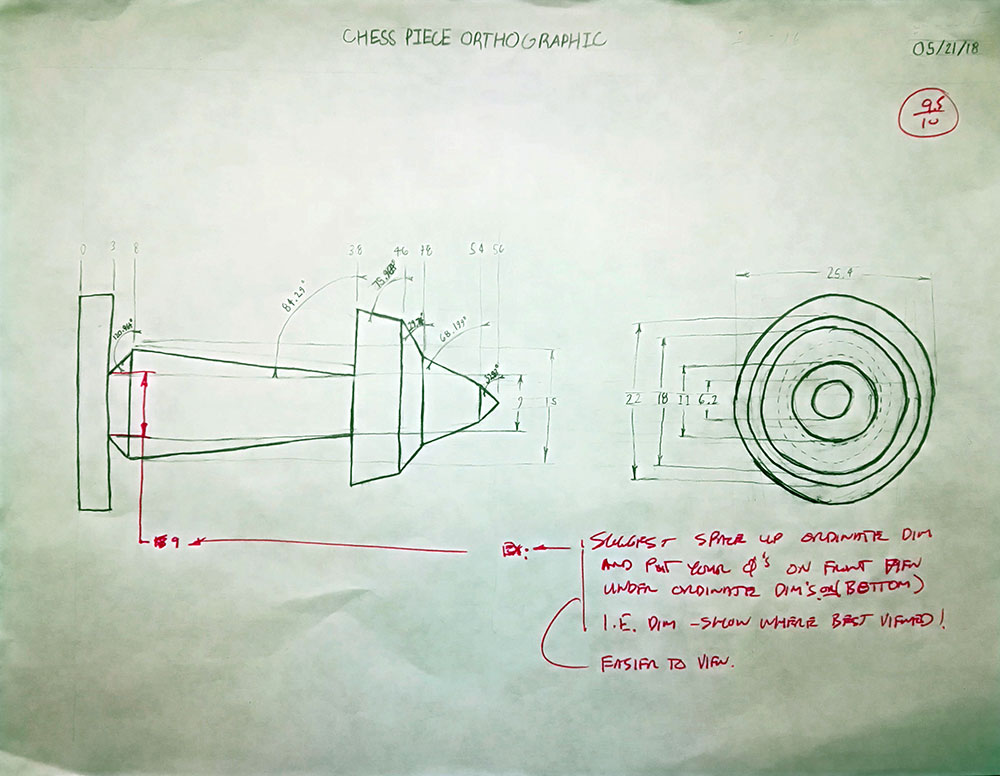 CHESS PIECE ORTHOGRAPHIC
05/21/18
9.5
10
0 3 8 38 46 48 54 56
84.29°
68.199°
9 15
25.4
22 18 11 6.2
9
EX:
SUGGEST SPACE UP ORDINATE DIM
AND PUT YOUR Φ'S ON FRONT VIEW
UNDER ORDINATE DIM'S ON (BOTTOM)
I.E. DIM - SHOW WHERE BEST VIEWED!
EASIER TO VIEW.